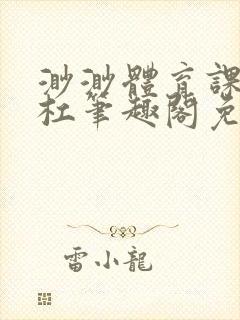 渺渺體育課
杜筆趣閣免
雷小龍